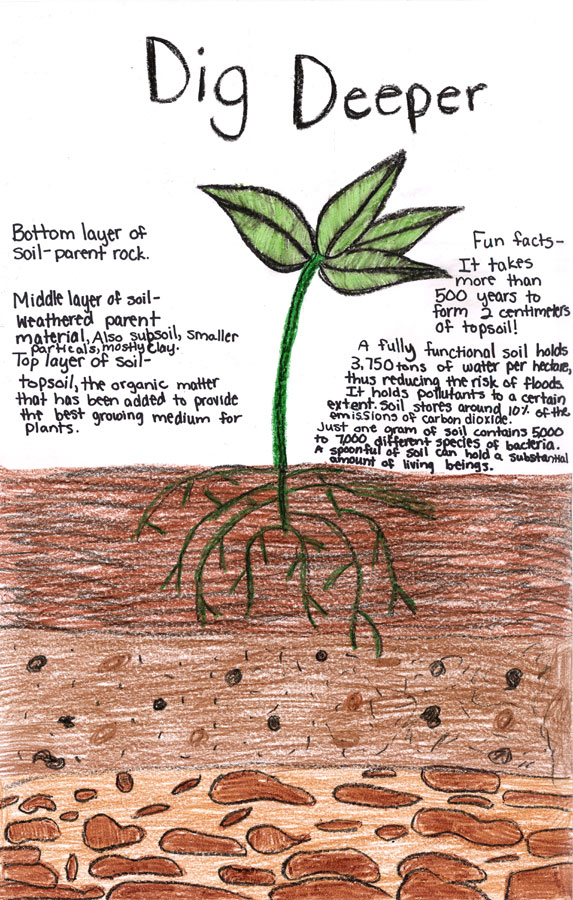 Dig Deeper
Bottom layer of
soil-parent rock.
Middle layer of soil-
weathered parent
material, Also subsoil, smaller
particals, mostly clay.
Top layer of soil-
topsoil, the organic matter
that has been added to provide
the best growing medium for
plants.
Fun facts-
It takes
more than
500 years to
form 2 centimeters
of topsoil!
A fully functional soil holds
3,750 tons of water per hectare,
thus reducing the risk of floods
It holds pollutants to a certain
extent. Soil stores around 10% of the
emissions of carbon dioxide.
Just one gram of soil contains 5,000
to 7,000 different species of bacteria.
A spoonful of soil can hold a substantial
amount of living beings.